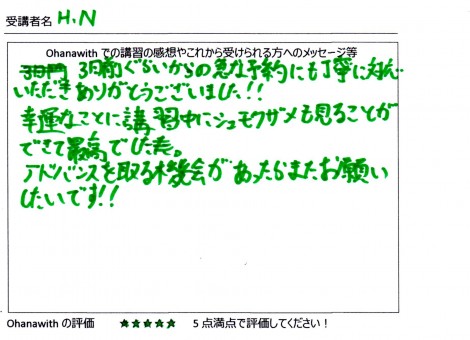 受講者名 H.N
Ohanawith での講習の感想やこれから受けられる方へのメッセージ等
3日前ぐらいからの急な予約にも丁寧に対応
いただきありがとうございました!!
幸運なことに講習中にシュモクザメも見ることが
できて最高でした。
アドバンスを取る機会があったらまたお願い
したいです!!
Ohanawith の評価 ★★★★★ 5 点満点で評価してください!